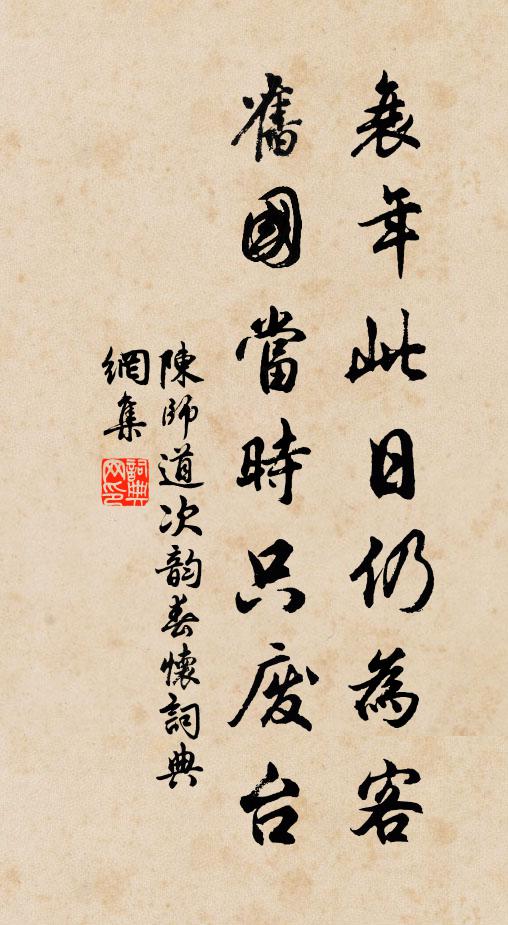 衰年此日仍為客
舊國當時只废台
陳師道次韵春懷詞典
網集
詞典网印